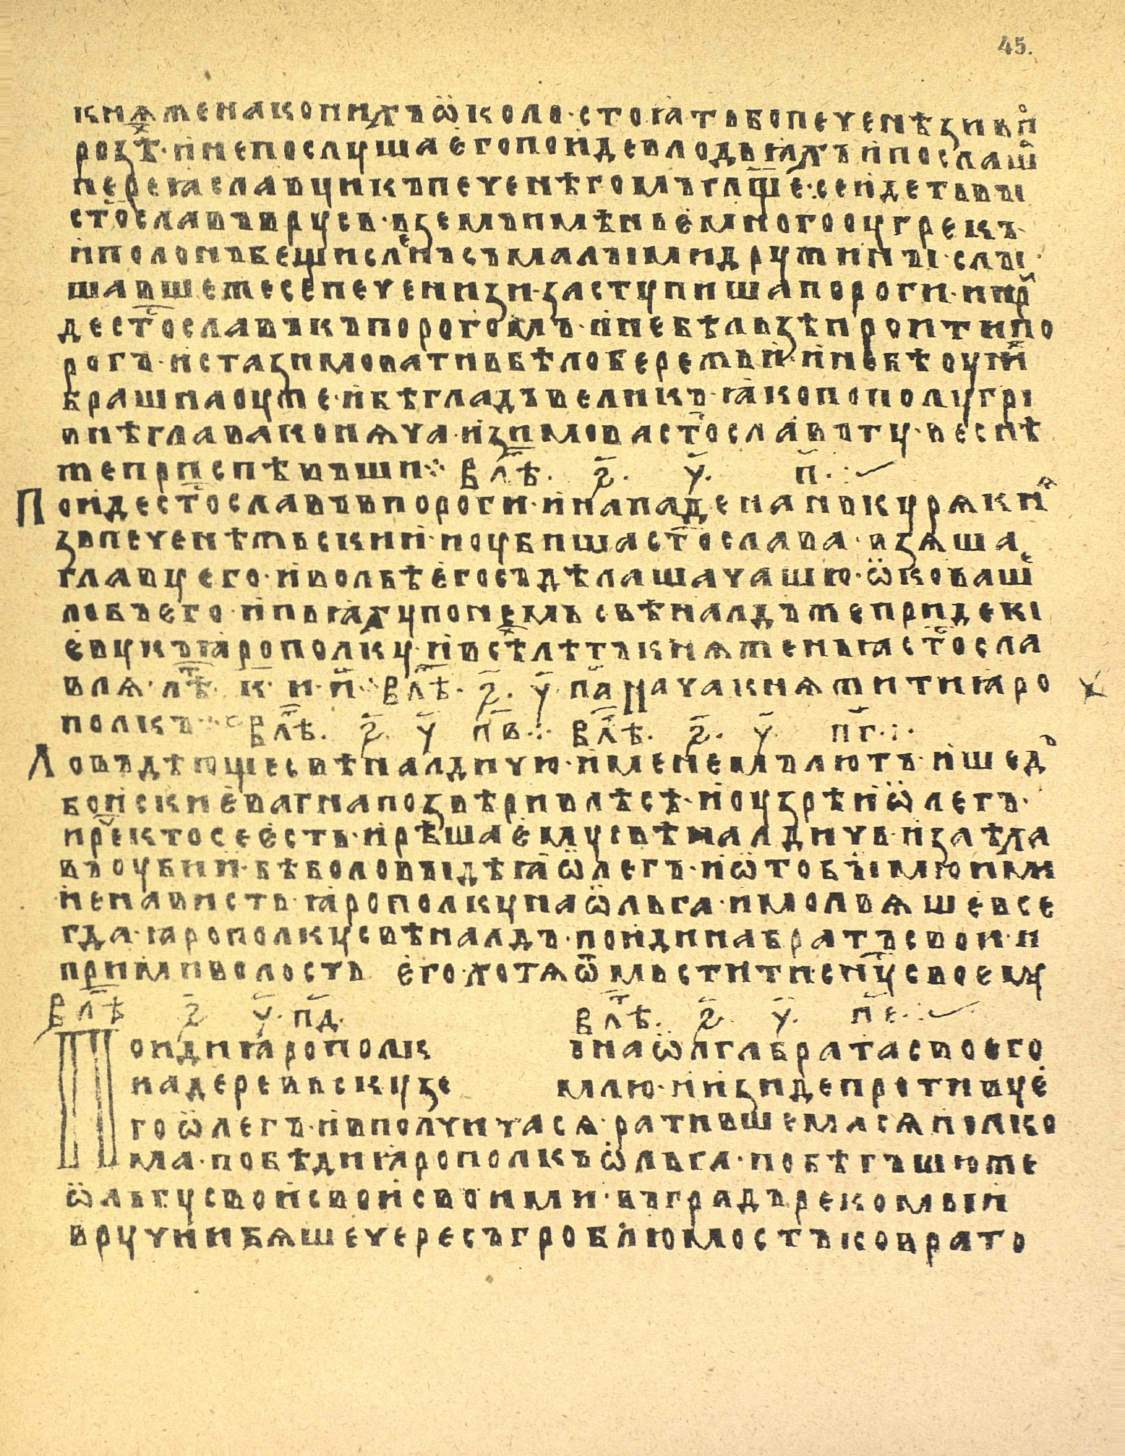 45.
кнѧже на конихъ ѡколо· стоꙗть бо печенѣзи в п
розѣ· и не послуша его поиде в лодьꙗхъ и послаш
переꙗславци къ печенѣгомъ глще· се идеть вы
стославъ в русь· вземъ имѣнье много оу грекъ·
и полонъ бещисленъ съ малыми дружины· слы
шавше же се печенизи· заступиша пороги· и при
де стославъ къ порогомъ· и не бѣ льзѣ проити по
рогъ· и ста зимовати в бѣлобережьи· и не бѣ оу ни
брашна оуже· и бѣ гладъ великъ· ꙗко по полугри
внѣ глава конѧча· и зимова стославъ ту· веснѣ
же приспѣвъши·:· В лѣ. ҂ѕ. у. п.
Поиде стославъ в пороги· и нападе на нь курѧ кн
зь печенѣжьскии· и оубиша стослава· взѧша
главу его· и во лбѣ его съдѣлаша чашю· ѡковаше
лобъ его· и пьꙗху по немь свѣналдъ же приде кы
еву къ ꙗрополку· и всѣ лѣтъ кнѧженьꙗ стосла
влѧ· лѣ. к· и· и·:· В лѣ· ҂ѕ. у. па Нача кнѧжити ꙗро
полкъ·:· В лѣ. ҂ѕ. у. пв·:· В лѣ. ҂ѕ. у. пг·:·
Ловъ дѣющю свѣналдичю· именемъ лютъ· ишед
бо ис киева гна по звѣри в лѣсѣ· и оузрѣ и ѡлегъ·
и ре кто се есть· и рѣша ему свѣналдичь· и заѣха
въ оуби и· бѣ бо ловы дѣꙗ ѡлегъ· и ѡ томь бы межю ими
ненависть· ꙗрополку на ѡльга· и молвѧше все
гда ꙗрополку свѣналдъ· поиди на братъ свои· и
прими волость его· хотѧ ѿмьстити сну своему
В лѣ ҂ѕ у· пд. В лѣ. ҂ѕ. у. пе·:·
Поиди ꙗрополкъ на ѡлга брата своего
на деревьску землю· и изиде противу е
го ѡлегъ· и вполчитасѧ· ратившемасѧ полко
ма· побѣди ꙗрополкъ ѡльга· побѣгъшю же
ѡльгу с вои своими· въ градъ рекомыи
вручии бѧше чересъ гроблю мостъ ко врато